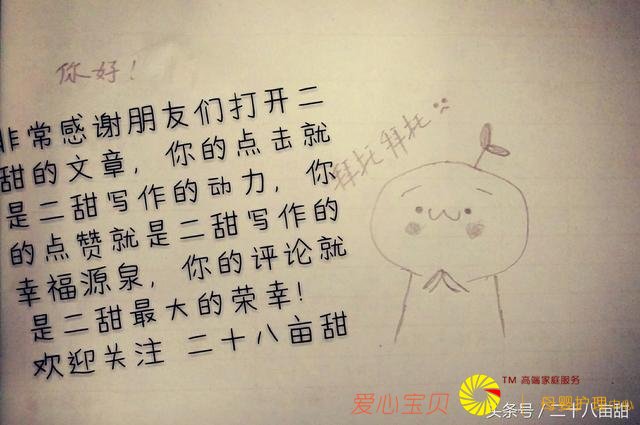 你好!
非常感谢朋友们打开二
甜的文章,你的点击就
是二甜写作的动力,你
的点赞就是二甜写作的
幸福源泉,你的评论就
是二甜最大的荣幸!
欢迎关注 二十八亩甜
拜托拜托
TM 高端家庭服务
爱心宝贝 | 母婴护理中心
头条号 / 二十八亩甜